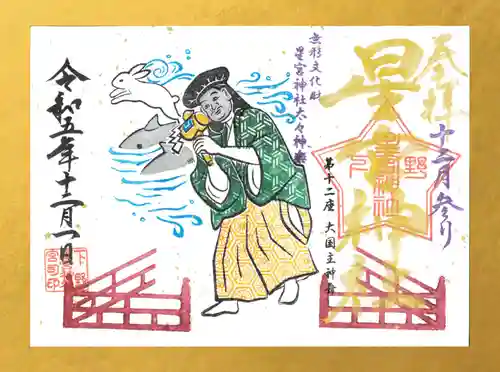 奉拝
十二月参り
星宮神社
下野
星宮神社
無形文化財
星宮神社太々神楽
第十二座 大国主神舞
令和五年十二月一日
下野
宮司印